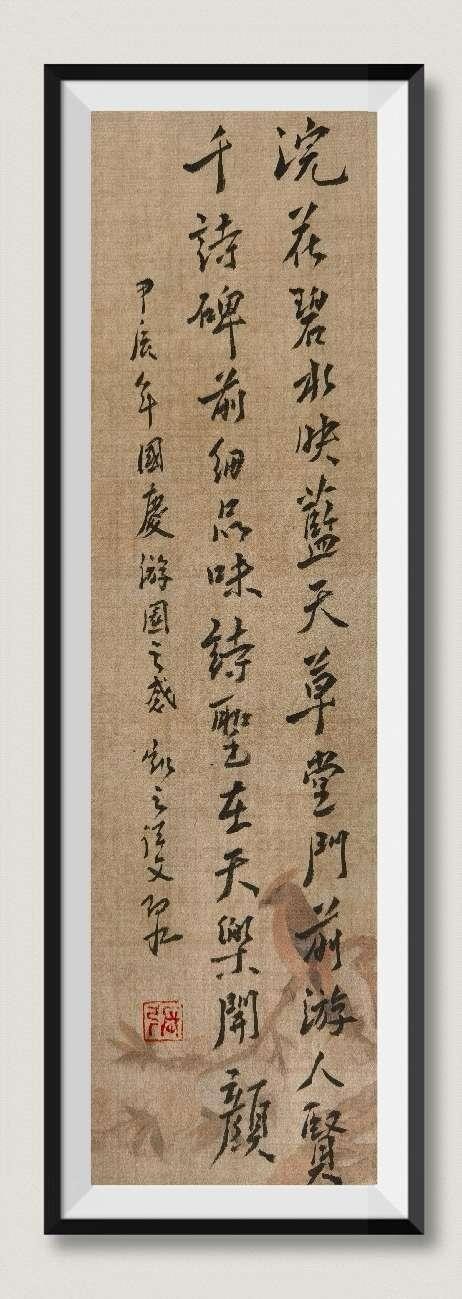 浣花碧水映藍天草堂門前游人賢
千詩碑前細品味詩聖在天樂開顏
甲辰年國慶游園之感